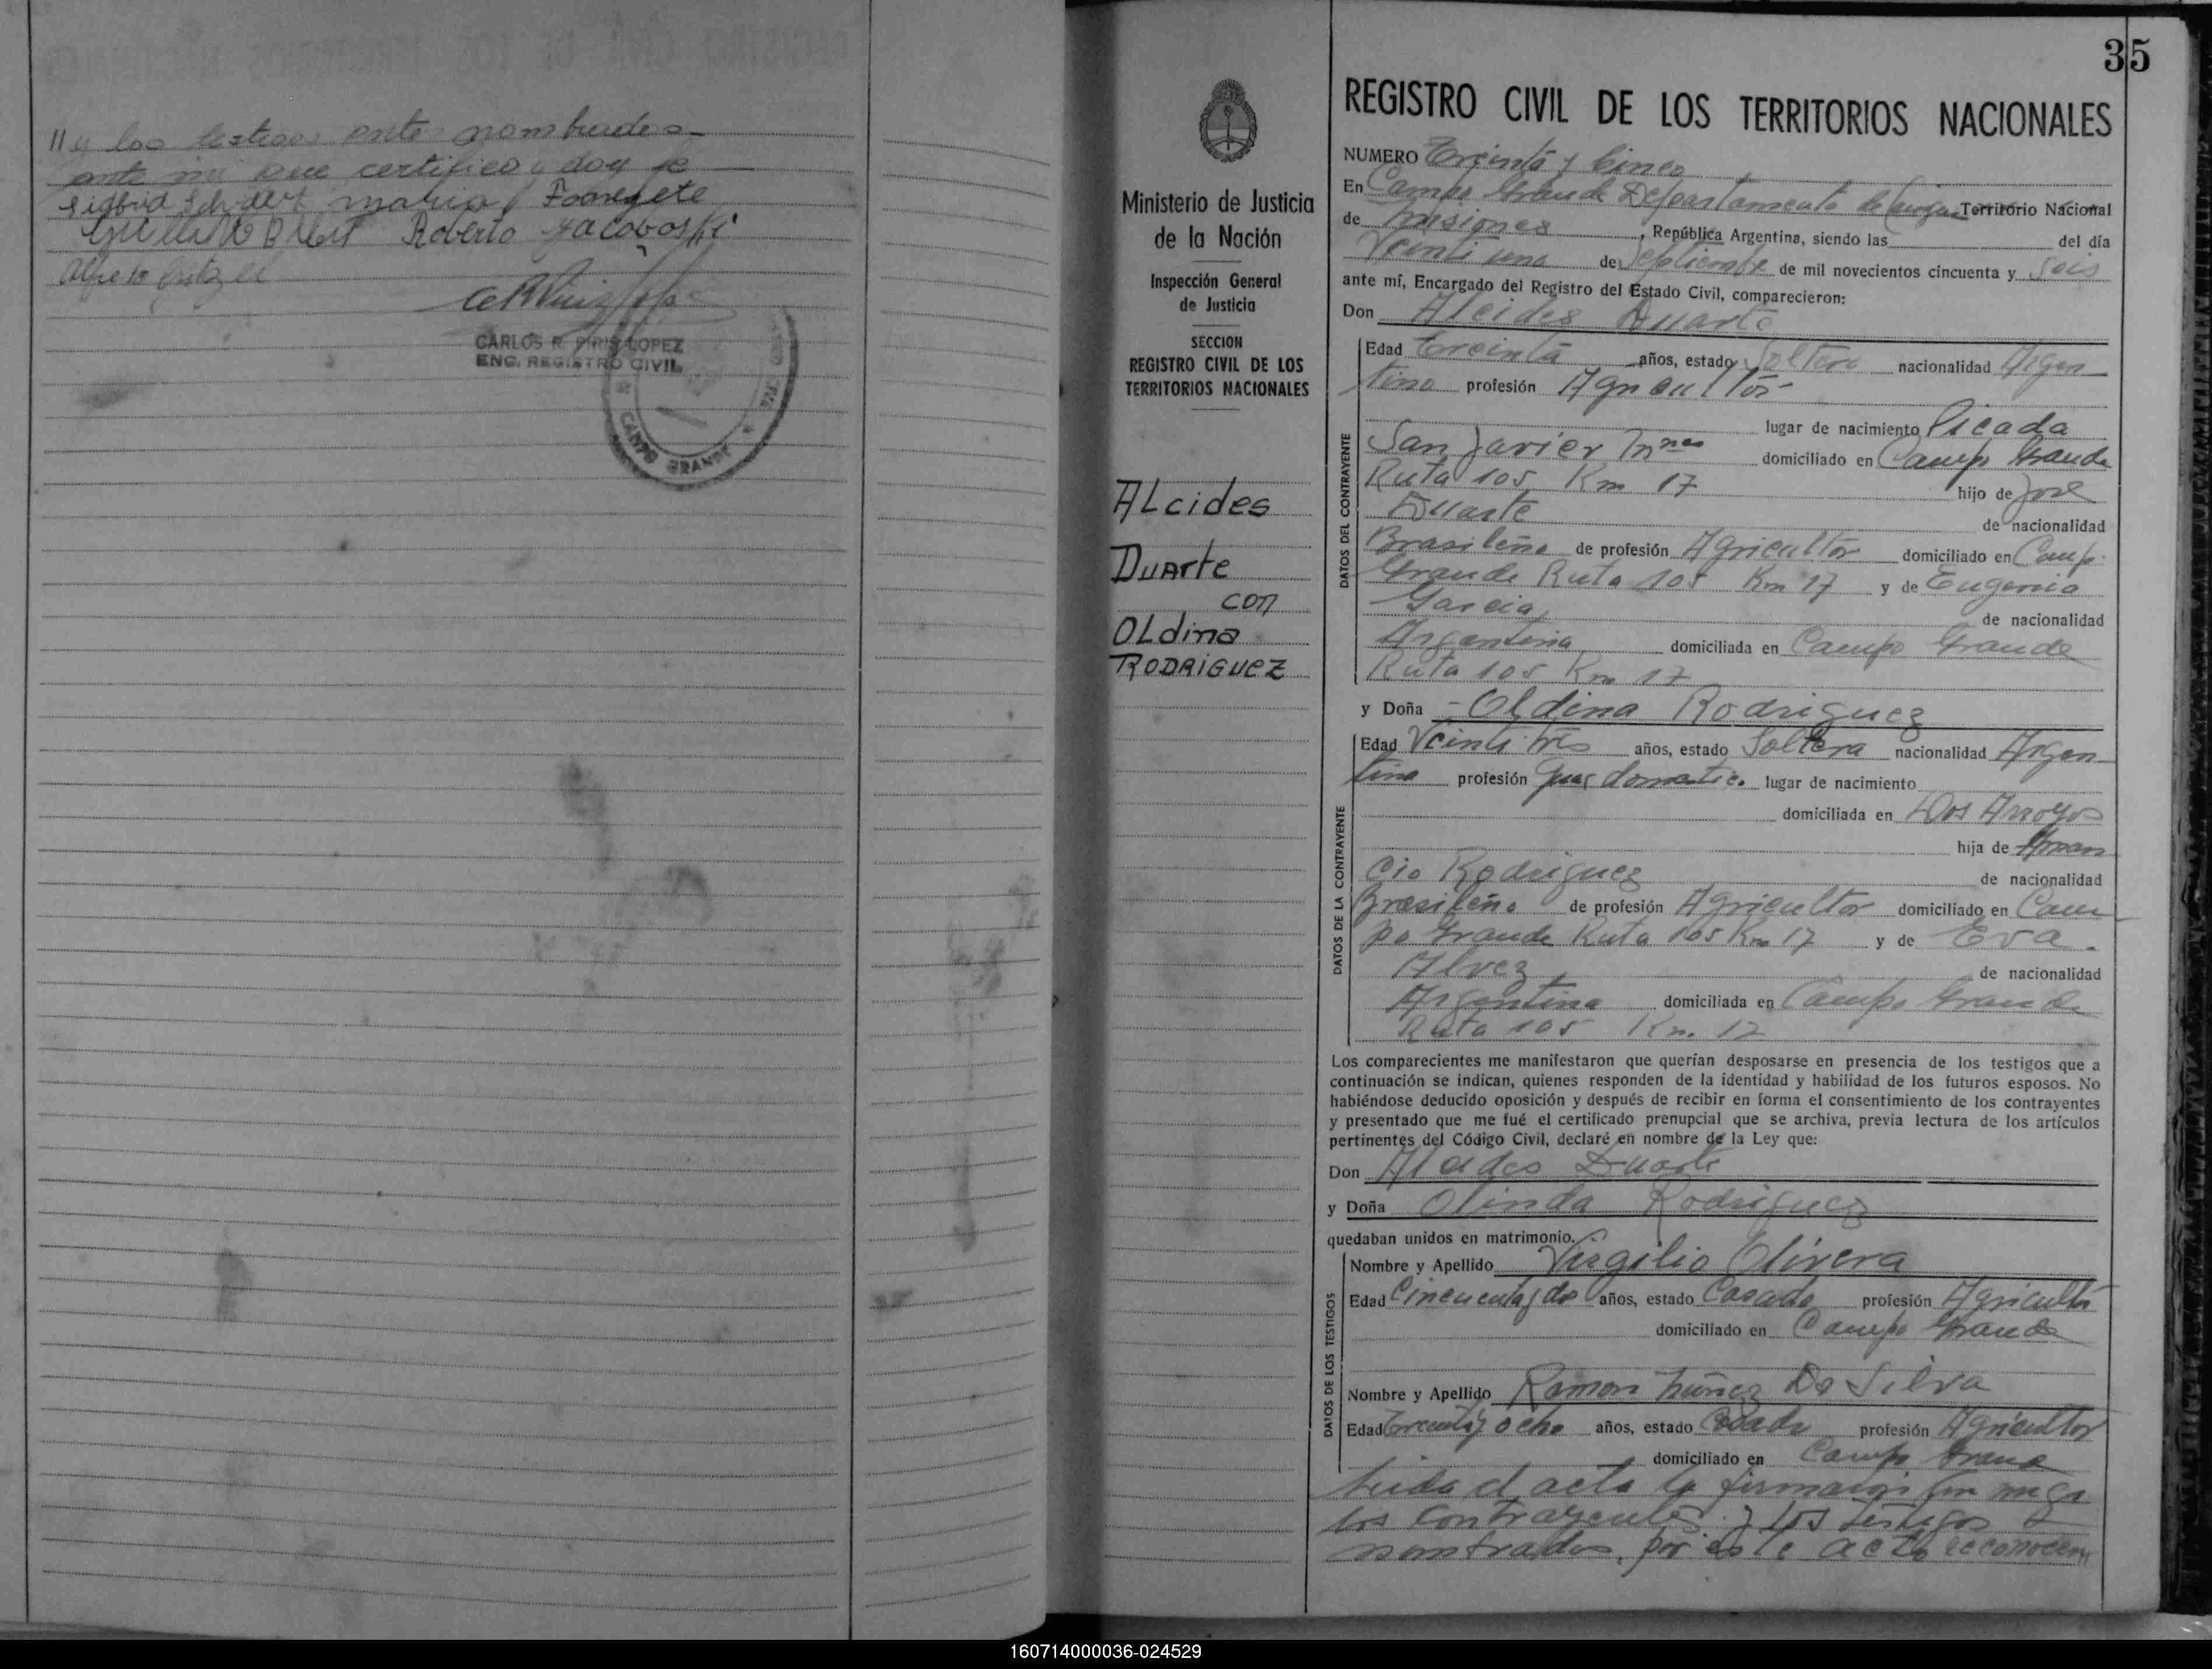 // y los testigos antes nombrados
ante mi que certifico y doy fe
maria
Roberto Jacoboski
Alfredo
CARLOS R. PIRIS LOPEZ
ENC. REGISTRO CIVIL
CAMPO GRANDE
35
Ministerio de Justicia
de la Nación
Inspección General
de Justicia
SECCION
REGISTRO CIVIL DE LOS
TERRITORIOS NACIONALES
ALcides
DUArte
con
OLdina
RODRiGUEZ
REGISTRO CIVIL DE LOS TERRITORIOS NACIONALES
NUMERO Treinta y Cinco
En Campo Grande Departamento de Territorio Nacional
de Misiones, República Argentina, siendo las del día
Veinti uno de Septiembre de mil novecientos cincuenta y Seis
ante mí, Encargado del Registro del Estado Civil, comparecieron:
Don Alcides Duarte
DATOS DEL CONTRAYENTE
Edad Treinta años, estado Soltero nacionalidad Argen
tino profesión Agricultor
lugar de nacimiento Picada
San Javier Mnes domiciliado en Campo Grande
Ruta 105 Km 17 hijo de José
Duarte de nacionalidad
Brasileño de profesión Agricultor domiciliado en Campo
Grande Ruta 105 Km 17 y de Eugenia
Garcia de nacionalidad
Argentina domiciliada en Campo Grande
Ruta 105 Km 17
y Doña - Oldina Rodriguez
DATOS DE LA CONTRAYENTE
Edad Veinti tres años, estado Soltera nacionalidad Argen
tina profesión domestico lugar de nacimiento
domiciliada en Dos Arroyos
hija de Aman
cio Rodriguez de nacionalidad
Brasileño de profesión Agricultor domiciliado en Cam
po Grande Ruta 105 Km 17 y de Eva
Alvez de nacionalidad
Argentina domiciliada en Campo Grande
Ruta 105 Km. 17
Los comparecientes me manifestaron que querían desposarse en presencia de los testigos que a
continuación se indican, quienes responden de la identidad y habilidad de los futuros esposos. No
habiéndose deducido oposición y después de recibir en forma el consentimiento de los contrayentes
y presentado que me fué el certificado prenupcial que se archiva, previa lectura de los artículos
pertinentes del Código Civil, declaré en nombre de la Ley que:
Don Alcides Duarte
y Doña Olinda Rodriguez
quedaban unidos en matrimonio.
DATOS DE LOS TESTIGOS
Nombre y Apellido Virgilio Olivera
Edad Cincuenta y dos años, estado Casado profesión Agricultor
domiciliado en Campo Grande
Nombre y Apellido Ramon Núñez Da Silva
Edad Treinta y ocho años, estado Casado profesión Agricultor
domiciliado en Campo Grande
Leida el acta la firmaron
los contrayentes y los testigos
nombrados, por este acto reconocen
160714000036-024529